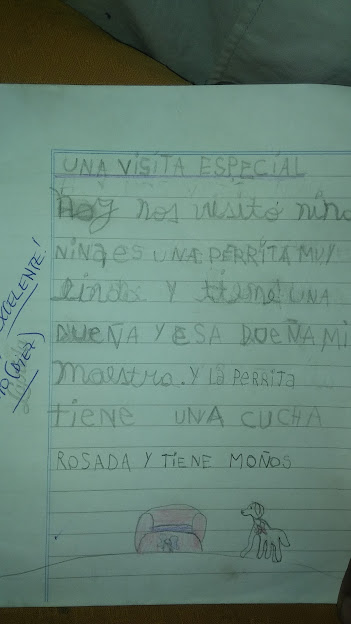 UNA VISITA ESPECIAL
Hoy nos visitó nina
NINA ES UNA PERRITA MUY
linda Y tiene UNA
DUEÑA Y ESA DUEÑA MI
Maestra. Y la PERRITA
tiene UNA CUCHA
ROSADA Y TIENE MOÑOS
EXCELENTE!